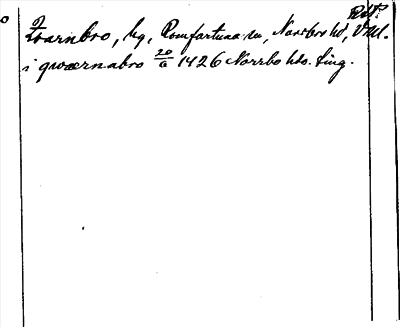 Kvarnbro, hg, Romfartuna sn, Norrbo hd, Vstml.
i qwærnabro 20/6 1426 Norrbo hds. ting.